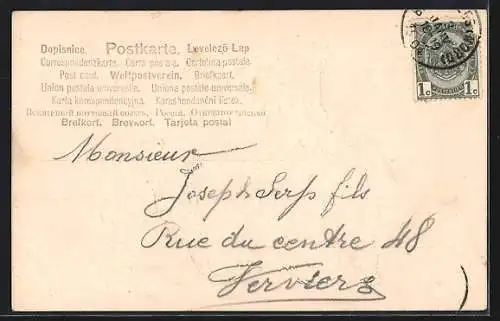 Dopisnice. Postkarte. Levelező Lap
Correspondenzkarte. Carte postale. Cartolina postale.
Post card. Weltpostverein. Briefkaart.
Union postale universelle. Unione postale universale.
Karta korespondencyjna. Korespondenční lístek.
Всемірный почтовый союзъ. Россія.
Brefkort. Brevkort. Tarjeta postal
1c 1c
Monsieur
Joseph Serf fils
Rue du centre 48
Verviers